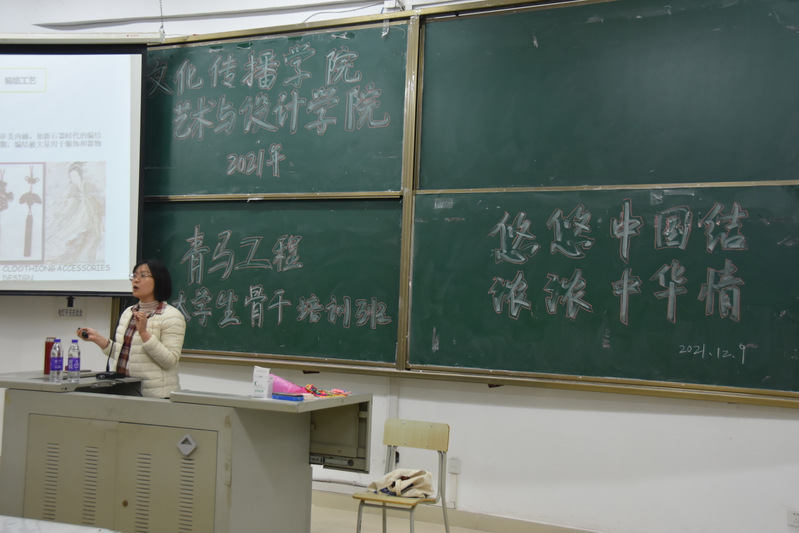 编结工艺
CLOOTHIONG ACCESSORIES
DESIGN
文化传播学院
艺术与设计学院
2021年
青马工程
大学生骨干培训班
悠悠中国结
浓浓中华情
2021.12.9